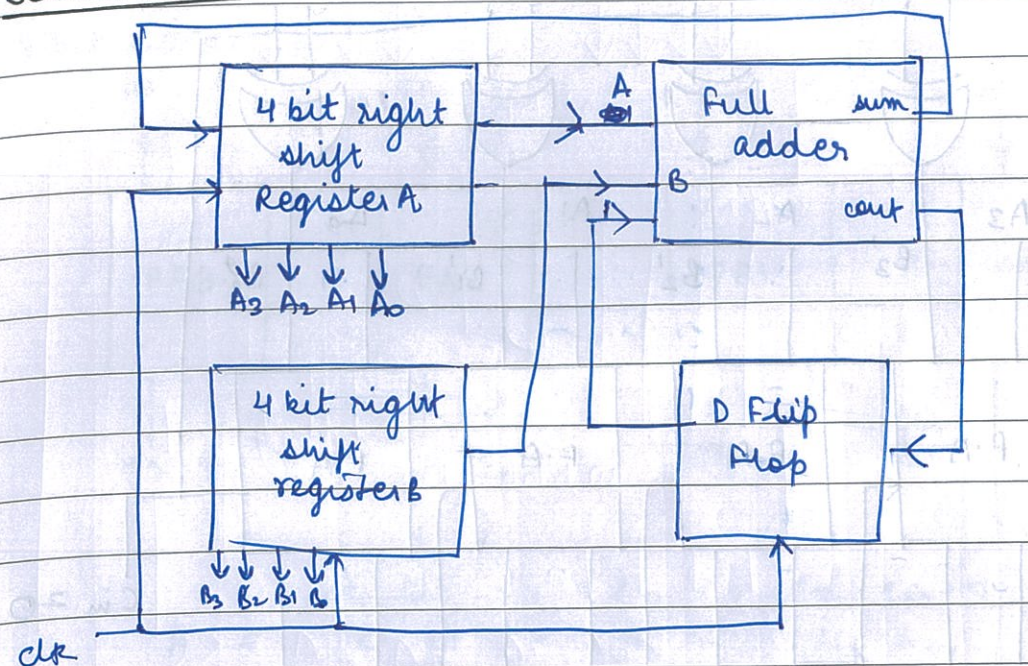 4 bit right
shift
Register A
A
Full
adder
sum
B
cout
A3 A2 A1 A0
4 bit right
shift
register B
D Flip
Flop
B3 B2 B1 B0
clk